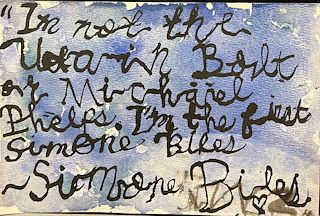 "I'm not the
Usain Bolt
or Michael
Phelps. I'm the first
Simone Biles
~Simone Biles